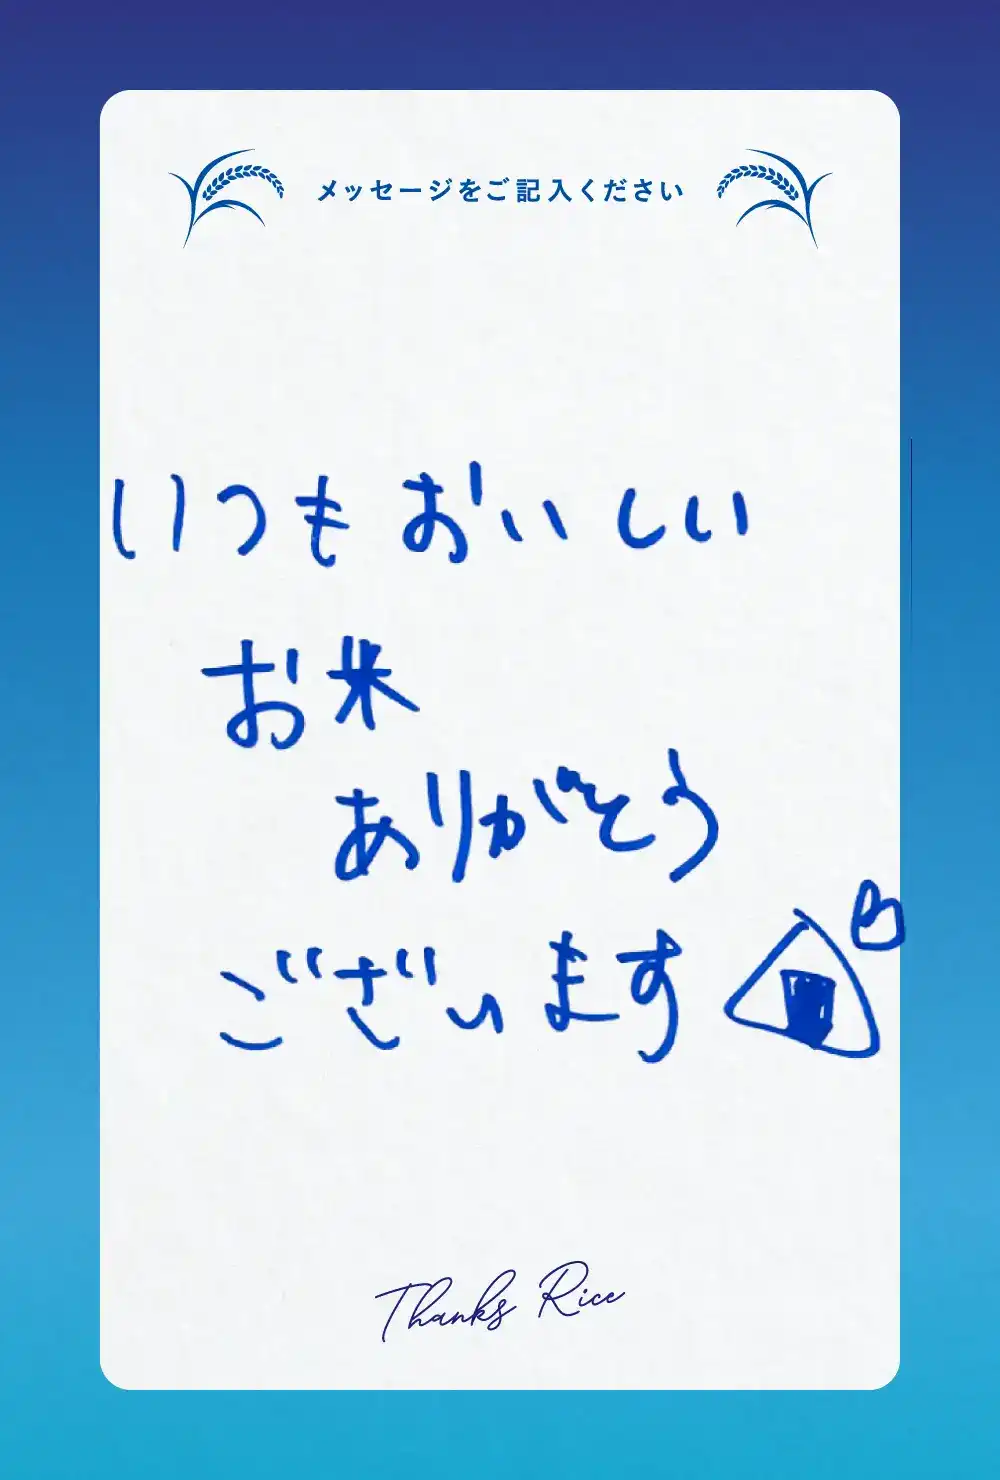 メッセージをご記入ください
いつもおいしい
お米
ありがとう
ございます
Thanks Rice